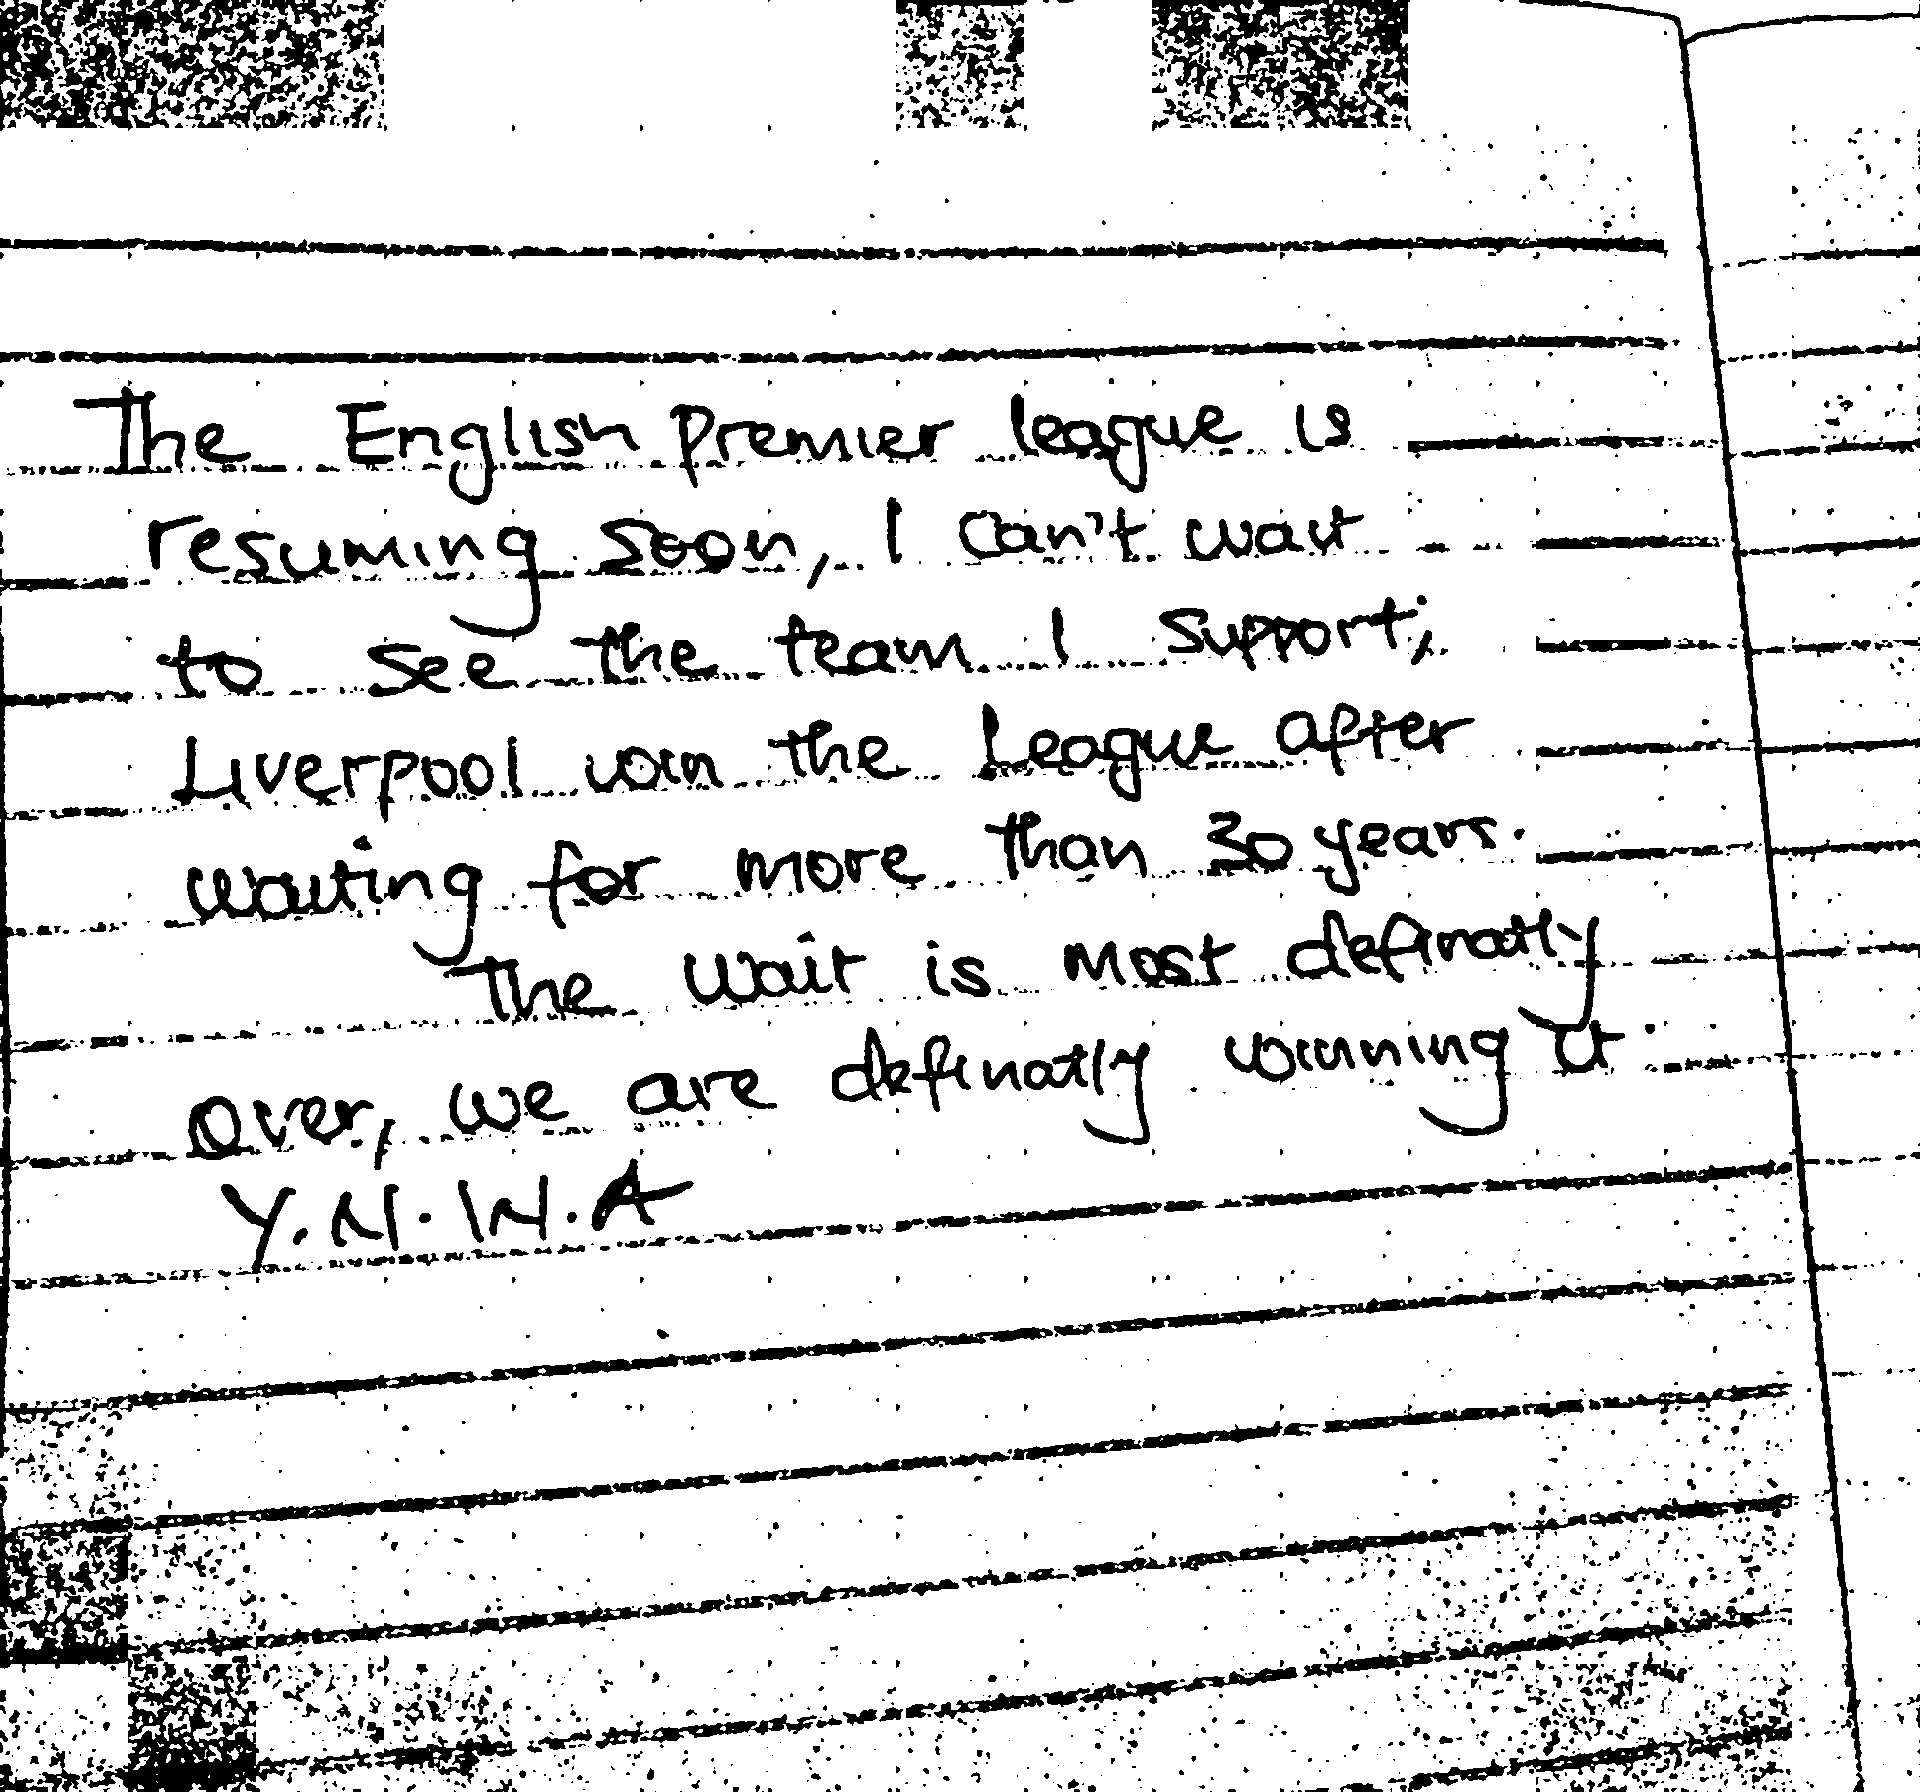 The English premier league is
resuming soon, I can't wait
to see the team I support;
Liverpool win the League after
waiting for more than 30 years.
The wait is most definatly
over, we are definatly winning it.
Y.N.W.A